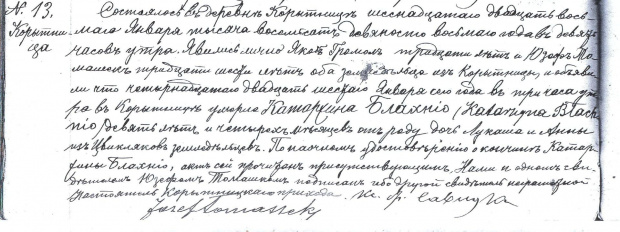 № 13,
Корытни
ца
Состоялось въ деревнѣ Корытницѣ шеснадцатаго двадцать вось-
маго Января тысяча восемьсотъ девяносто восьмаго года въ девять
часовъ утра. Явились лично Яковъ Громолъ тридцати лѣтъ и Юзефъ То
машекъ тридцати шести лѣтъ оба земледѣльцы изъ Корытницы, и объяви
ли что четырнадцатаго двадцать шестаго Января сего года въ три часа ут
ра въ Корытницѣ умерла Катаржина Блахніо /Katarzyna Blach
nio/ девять лѣтъ и четырехъ мѣсяцевъ отъ роду дочь Лукаша и Анны
изъ Цвикляковъ земледѣльцевъ. По наочномъ удостовѣреніи о кончинѣ Катар
жины Блахніо, актъ сей прочитанъ присутствующимъ, Нами и однимъ сви-
дѣтелемъ Юзефомъ Томашкомъ подписанъ ибо другой свидѣтель неграмотный
Настоятель Корытницкаго прихода. Кс. Ф.
Józef Tomaszek